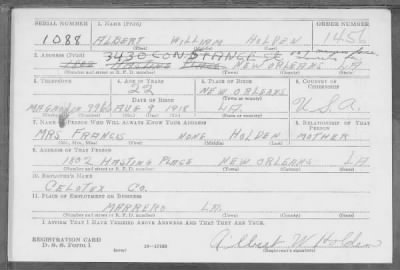 SERIAL NUMBER 1. NAME (Print) ORDER NUMBER
1088 ALBERT WILLIAM HOLDEN 1456
(First) (Middle) (Last)
2. ADDRESS (Print)
3430 CONSTANCE ST
1802 HASTING PLACE NEW ORLEANS LA.
(Number and street or R. F. D. number) (Town) (County) (State)
3. TELEPHONE 4. AGE IN YEARS 5. PLACE OF BIRTH 6. COUNTRY OF CITIZENSHIP
22 NEW ORLEANS
DATE OF BIRTH (Town or county)
AUG 9 1918 LA. U.S.A.
(Mo.) (Day) (Yr.) (State or country)
7. NAME OF PERSON WHO WILL ALWAYS KNOW YOUR ADDRESS 8. RELATIONSHIP OF THAT PERSON
MRS. FRANCIS NONE HOLDEN MOTHER
(Mr., Mrs., Miss) (First) (Middle) (Last)
9. ADDRESS OF THAT PERSON
1802 HASTING PLACE NEW ORLEANS LA
(Number and street or R. F. D. number) (Town) (County) (State)
10. EMPLOYER'S NAME
CELOTEX CO.
11. PLACE OF EMPLOYMENT OR BUSINESS
MARRERO LA.
(Number and street or R. F. D. number) (Town) (County) (State)
I AFFIRM THAT I HAVE VERIFIED ABOVE ANSWERS AND THAT THEY ARE TRUE.
REGISTRATION CARD
D. S. S. Form 1 (over) 16—17105 Albert W Holden